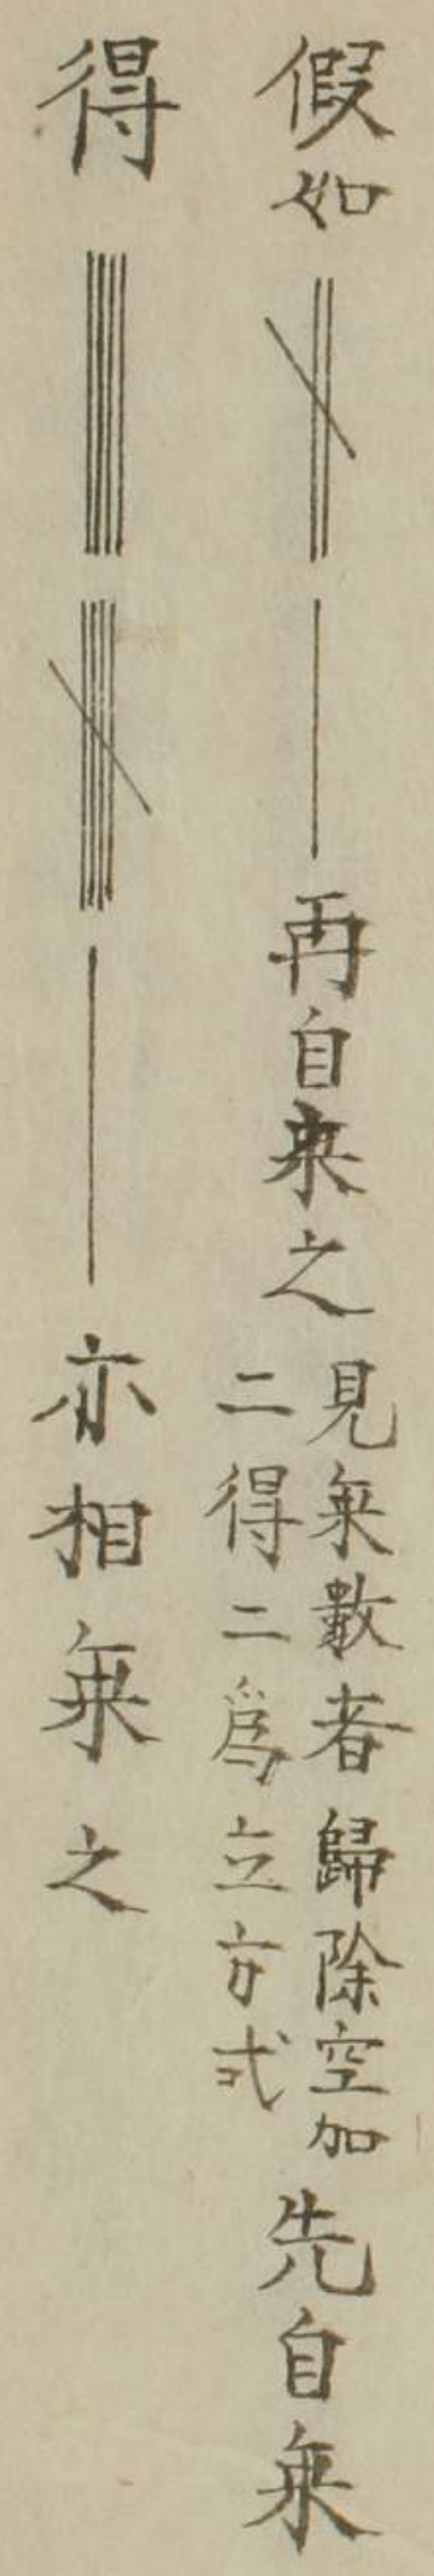 假如 || | 再自乗之
見乗數者歸除空加
二得二爲立方式
先自乗
得 |||| |||| | 亦相乗之